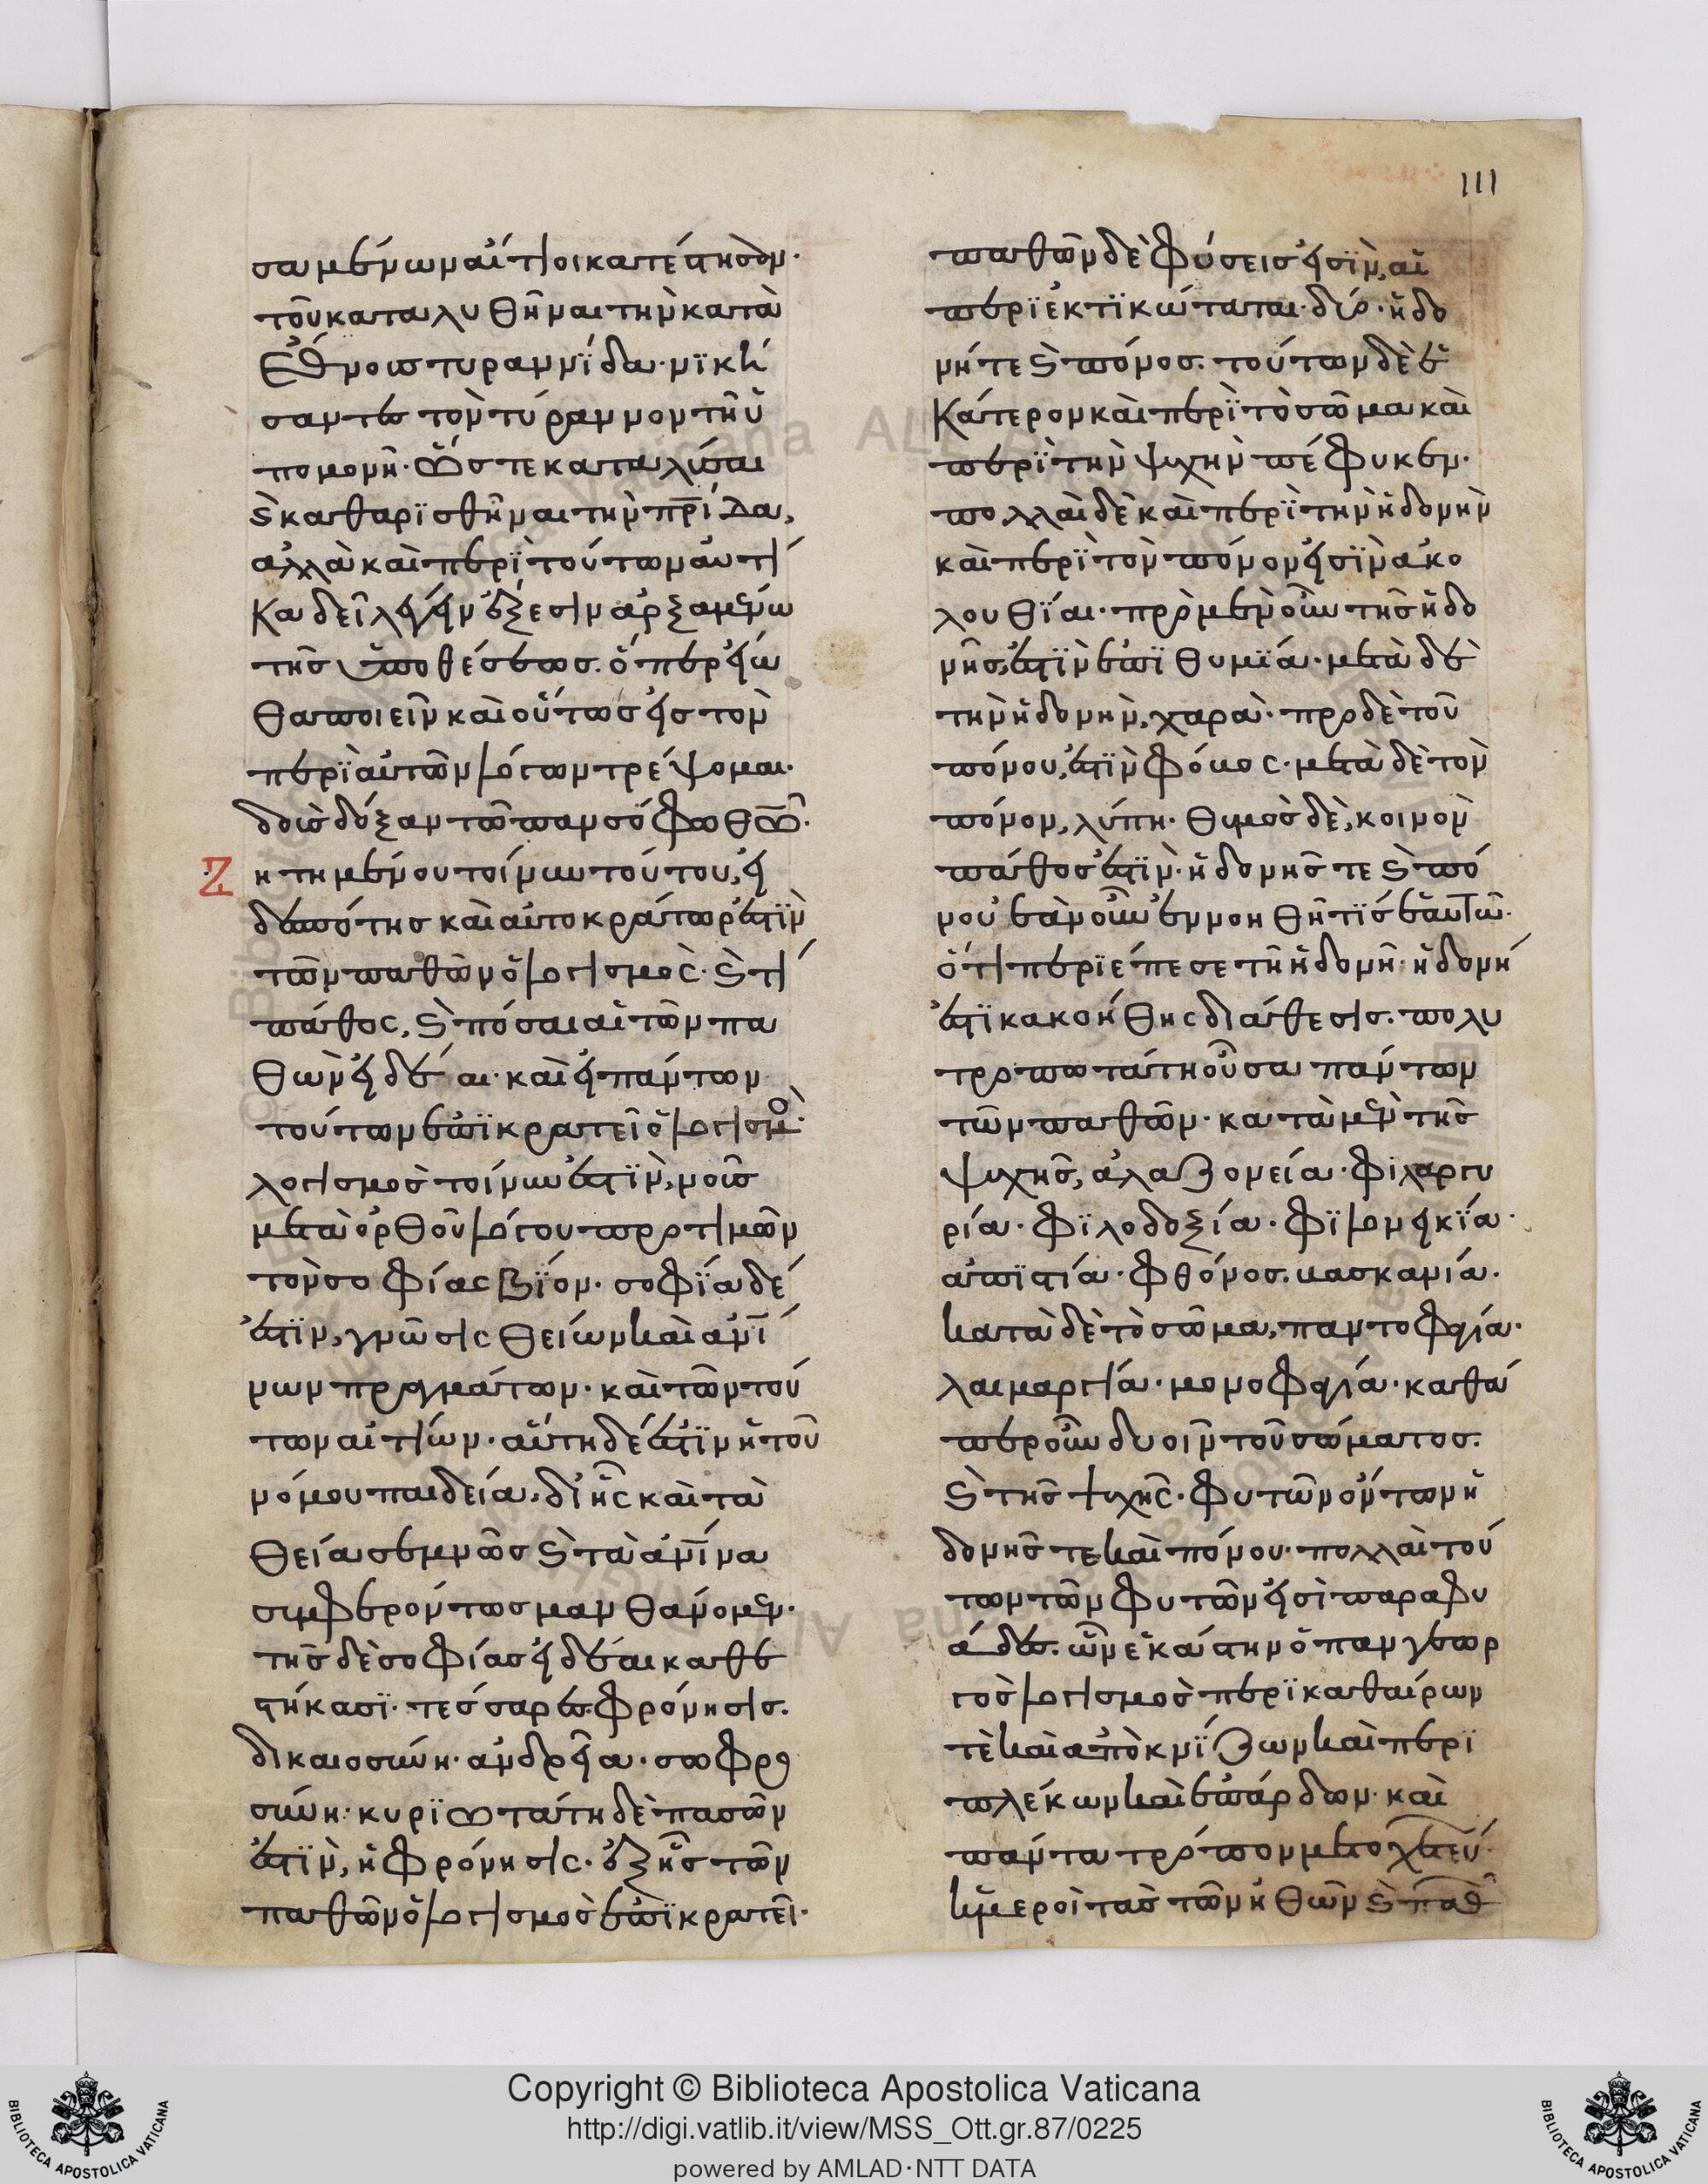 111
σαμενων αἴτιοι κατέστησαν·
τοῦ καταλυθῆναι τὴν κατὰ
ἔθνους τυραννίδα· νική
σαντες τὸν τύραννον τῆ ὑ
πομονῆ· ὥστε καταλύσαι
καὶ καθαρισθῆναι τὴν πρίδα,
ἀλλὰ καὶ περὶ τούτων αὐτί
κα δεῖ λέγειν ἔξεστιν ἀρξαμένω
τῆς ὑποθέσεως. ὅπερ εἰώ
θα ποιεῖν καὶ οὕτως εἰς τὸν
περὶ αὐτῶν λόγων τρέψομαι·
δοὺς δόξαν τῶ πανσόφω θῶ·
Ζητημεν οὐ τοίνυν τούτου, εἰ
δεσπότης καὶ αὐτοκράτωρ ἐστὶν
τῶν παθῶν ὁ λογισμὸς· καὶ τί
πάθος, καὶ πόσαι αἱ τῶν πα
θῶν εἰδέαι· καὶ εἰ πάντων
τούτων ἐπικρατεῖ ὁ λογισμὸ·
λογισμὸς τοίνυν ἐστὶν, νοῦς
μετὰ ὀρθοῦ λόγου προτιμῶν
τὸν σοφίας βίον· σοφία δέ
ἐστιν, γνῶσις θείων καὶ ἀνί
νων πραγμάτων· καὶ τῶν τού
των αἰτίων· αὕτη δέ ἐστιν ἡ τοῦ
νόμου παιδεία· δι ἧς καὶ τὰ
θεία σεμνῶς καὶ τὰ ἀνίνα
συμφερόντως μανθάνομεν·
τῆς δὲ σοφίας εἰδέαι καθε
στήκασι· τέσσαρες. φρόνησις.
δικαιοσύνη· ἀνδρεία· σωφρο
σύνη· κυριωτάτη δὲ πασῶν
ἐστὶν, ἡ φρόνησις· ἐξ ἧς τῶν
παθῶν ὁ λογισμὸς ἐπικρατεῖ·
παθῶν δὲ φύσεις εἰσὶν, αἱ
περιεκτικώταται· δύο· ἡδο
νή τε καὶ πόνος. τούτων δὲ ἑ
κάτερον καὶ περὶ τὸ σῶμα καὶ
περὶ τὴν ψυχὴν πέφυκεν·
πολλαὶ δὲ καὶ περὶ τὴν ἡδονὴν
καὶ περὶ τὸν πόνον εἰσὶν ἀκο
λουθίαι· πρὸ μὲν οὖν τῆς ἡδο
νῆς, ἐστὶν ἐπιθυμία· μετὰ δὲ
τὴν ἡδονὴν, χαρὰ· προ δὲ τοῦ
πόνου, ἐστὶν φόβος· μετὰ δὲ τὸν
πόνον, λύπη· θυμὸς δὲ, κοινὸν
πάθος ἐστὶν· ἡδονῆς τε καὶ πό
νου ἐὰν οὖν ἐννοηθῆ τίς ἑαυτῶ·
ὅτι περιέπεσε τῆ ἡδονῆ· ἡδονή
ἐστι κακοήθης διάθεσις· πολυ
τροπωτάτη οὖσα πάντων
τῶν παθῶν· κατὰ μὲν τῆς
ψυχῆς, ἀλαζονεία· φιλαργυ
ρία· φιλοδοξία· φιλονεικία·
ἀπιστία· φθόνος. βασκανία·
κατὰ δὲ τὸ σῶμα, παντοφαγία·
λαιμαργία· μονοφαγία· καθά
περ οὖν δυοῖν τοῦ σώματος.
καὶ τῆς ψυχῆς· φυτῶν ὄντων ἡ
δονῆς τε καὶ πόνου· πολλαὶ τού
των τῶν φυτῶν εἰσὶ παραφυ
άδες. ὧν ἑκάστην ὁ παν γεωρ
γὸς λογισμὸς περικαθαίρων
τὲ καὶ ἀποκνίζων καὶ περι
πλέκων καὶ ἐπάρδων· καὶ
πάντα τρόπον μετοχετεύ
ἡμεροῖ τὰς τῶν ἠθῶν καὶ παθ
Copyright © Biblioteca Apostolica Vaticana
http://digi.vatlib.it/view/MSS_Ott.gr.87/0225
powered by AMLAD·NTT DATA
BIBLIOTECA APOSTOLICA VATICANA
BIBLIOTECA APOSTOLICA VATICANA